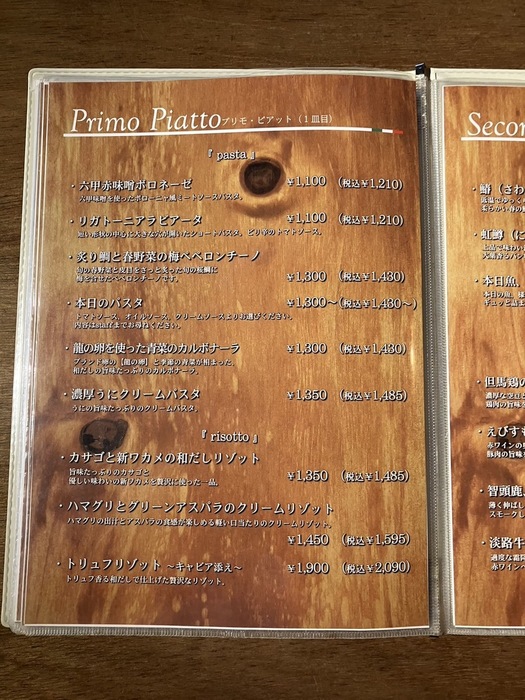 Primo Piatto プリモ・ピアット（１皿目）
『 pasta 』
・六甲赤味噌ボロネーゼ ￥1,100 （税込￥1,210）
六甲味噌を使ったボローニャ風ミートソースパスタ。
・リガトーニアラビアータ ￥1,100 （税込￥1,210）
短い形状の中心に大きな穴が開いたショートパスタ。ピリ辛のトマトソース。
・炙り鯛と春野菜の梅ペペロンチーノ
旬の春野菜と皮目をさっと炙った旬の桜鯛に
梅を合せたペペロンチーノです。 ￥1,300 （税込￥1,430）
・本日のパスタ ￥1,300〜（税込￥1,430〜）
トマトソース、オイルソース、クリームソースよりお選びください。
内容はstaffまでお尋ねください。
・龍の卵を使った青菜のカルボナーラ ￥1,300 （税込￥1,430）
ブランド卵の【龍の卵】と季節の青菜が相まった、
和だしの旨味たっぷりのカルボナーラ。
・濃厚うにクリームパスタ ￥1,350 （税込￥1,485）
うにの旨味たっぷりのクリームパスタ。
『 risotto 』
・カサゴと新ワカメの和だしリゾット
旨味たっぷりのカサゴと
優しい味わいの新ワカメを贅沢に使った一品。 ￥1,350 （税込￥1,485）
・ハマグリとグリーンアスパラのクリームリゾット
ハマグリの出汁とアスパラの食感が楽しめる軽い口当たりのクリームリゾット。
￥1,450 （税込￥1,595）
・トリュフリゾット 〜キャビア添え〜 ￥1,900 （税込￥2,090）
トリュフ香る和だしで仕上げた贅沢なリゾット。
Secon
・鰆（さわ
低温でゆっく
柔らかい春の
・虹鱒（に
上品で味わい
・本日魚、
本日の魚、様
ギュッと詰ま
・但馬鶏の
濃厚な空豆と
鶏肉の旨味
・えびすも
赤ワインの
豚肉の旨味を
・智頭鹿
薄く伸ばし
スモークし
・淡路牛
適度な霜降
赤ワイン